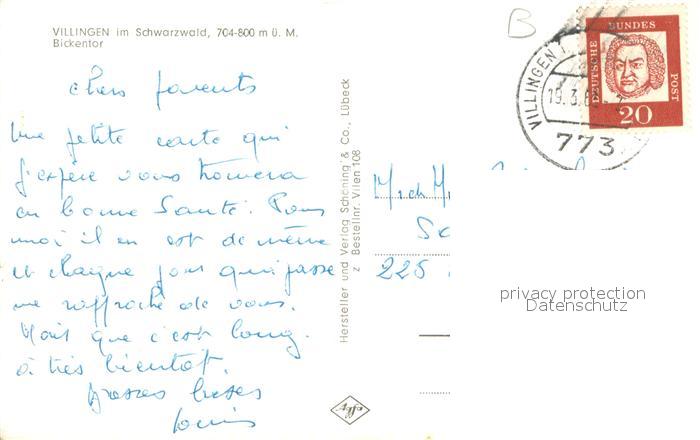 VILLINGEN im Schwarzwald, 704-800 m ü. M.
Bickentor
chers parents
Une petite carte qui
j'espère vous trouvera
en bonne Santé. Pour
moi il en est de même
et chaque jour qui passe
me rapproche de vous.
Mais que c'est long.
à très bientôt.
Grosses bises
Louis
Hersteller und Verlag Schöning & Co., Lübeck
z Bestellnr. Vilen 108
Agfa
B
VILLINGEN
19.3.6
773
DEUTSCHE
BUNDES
POST
20
225
privacy protection
Datenschutz